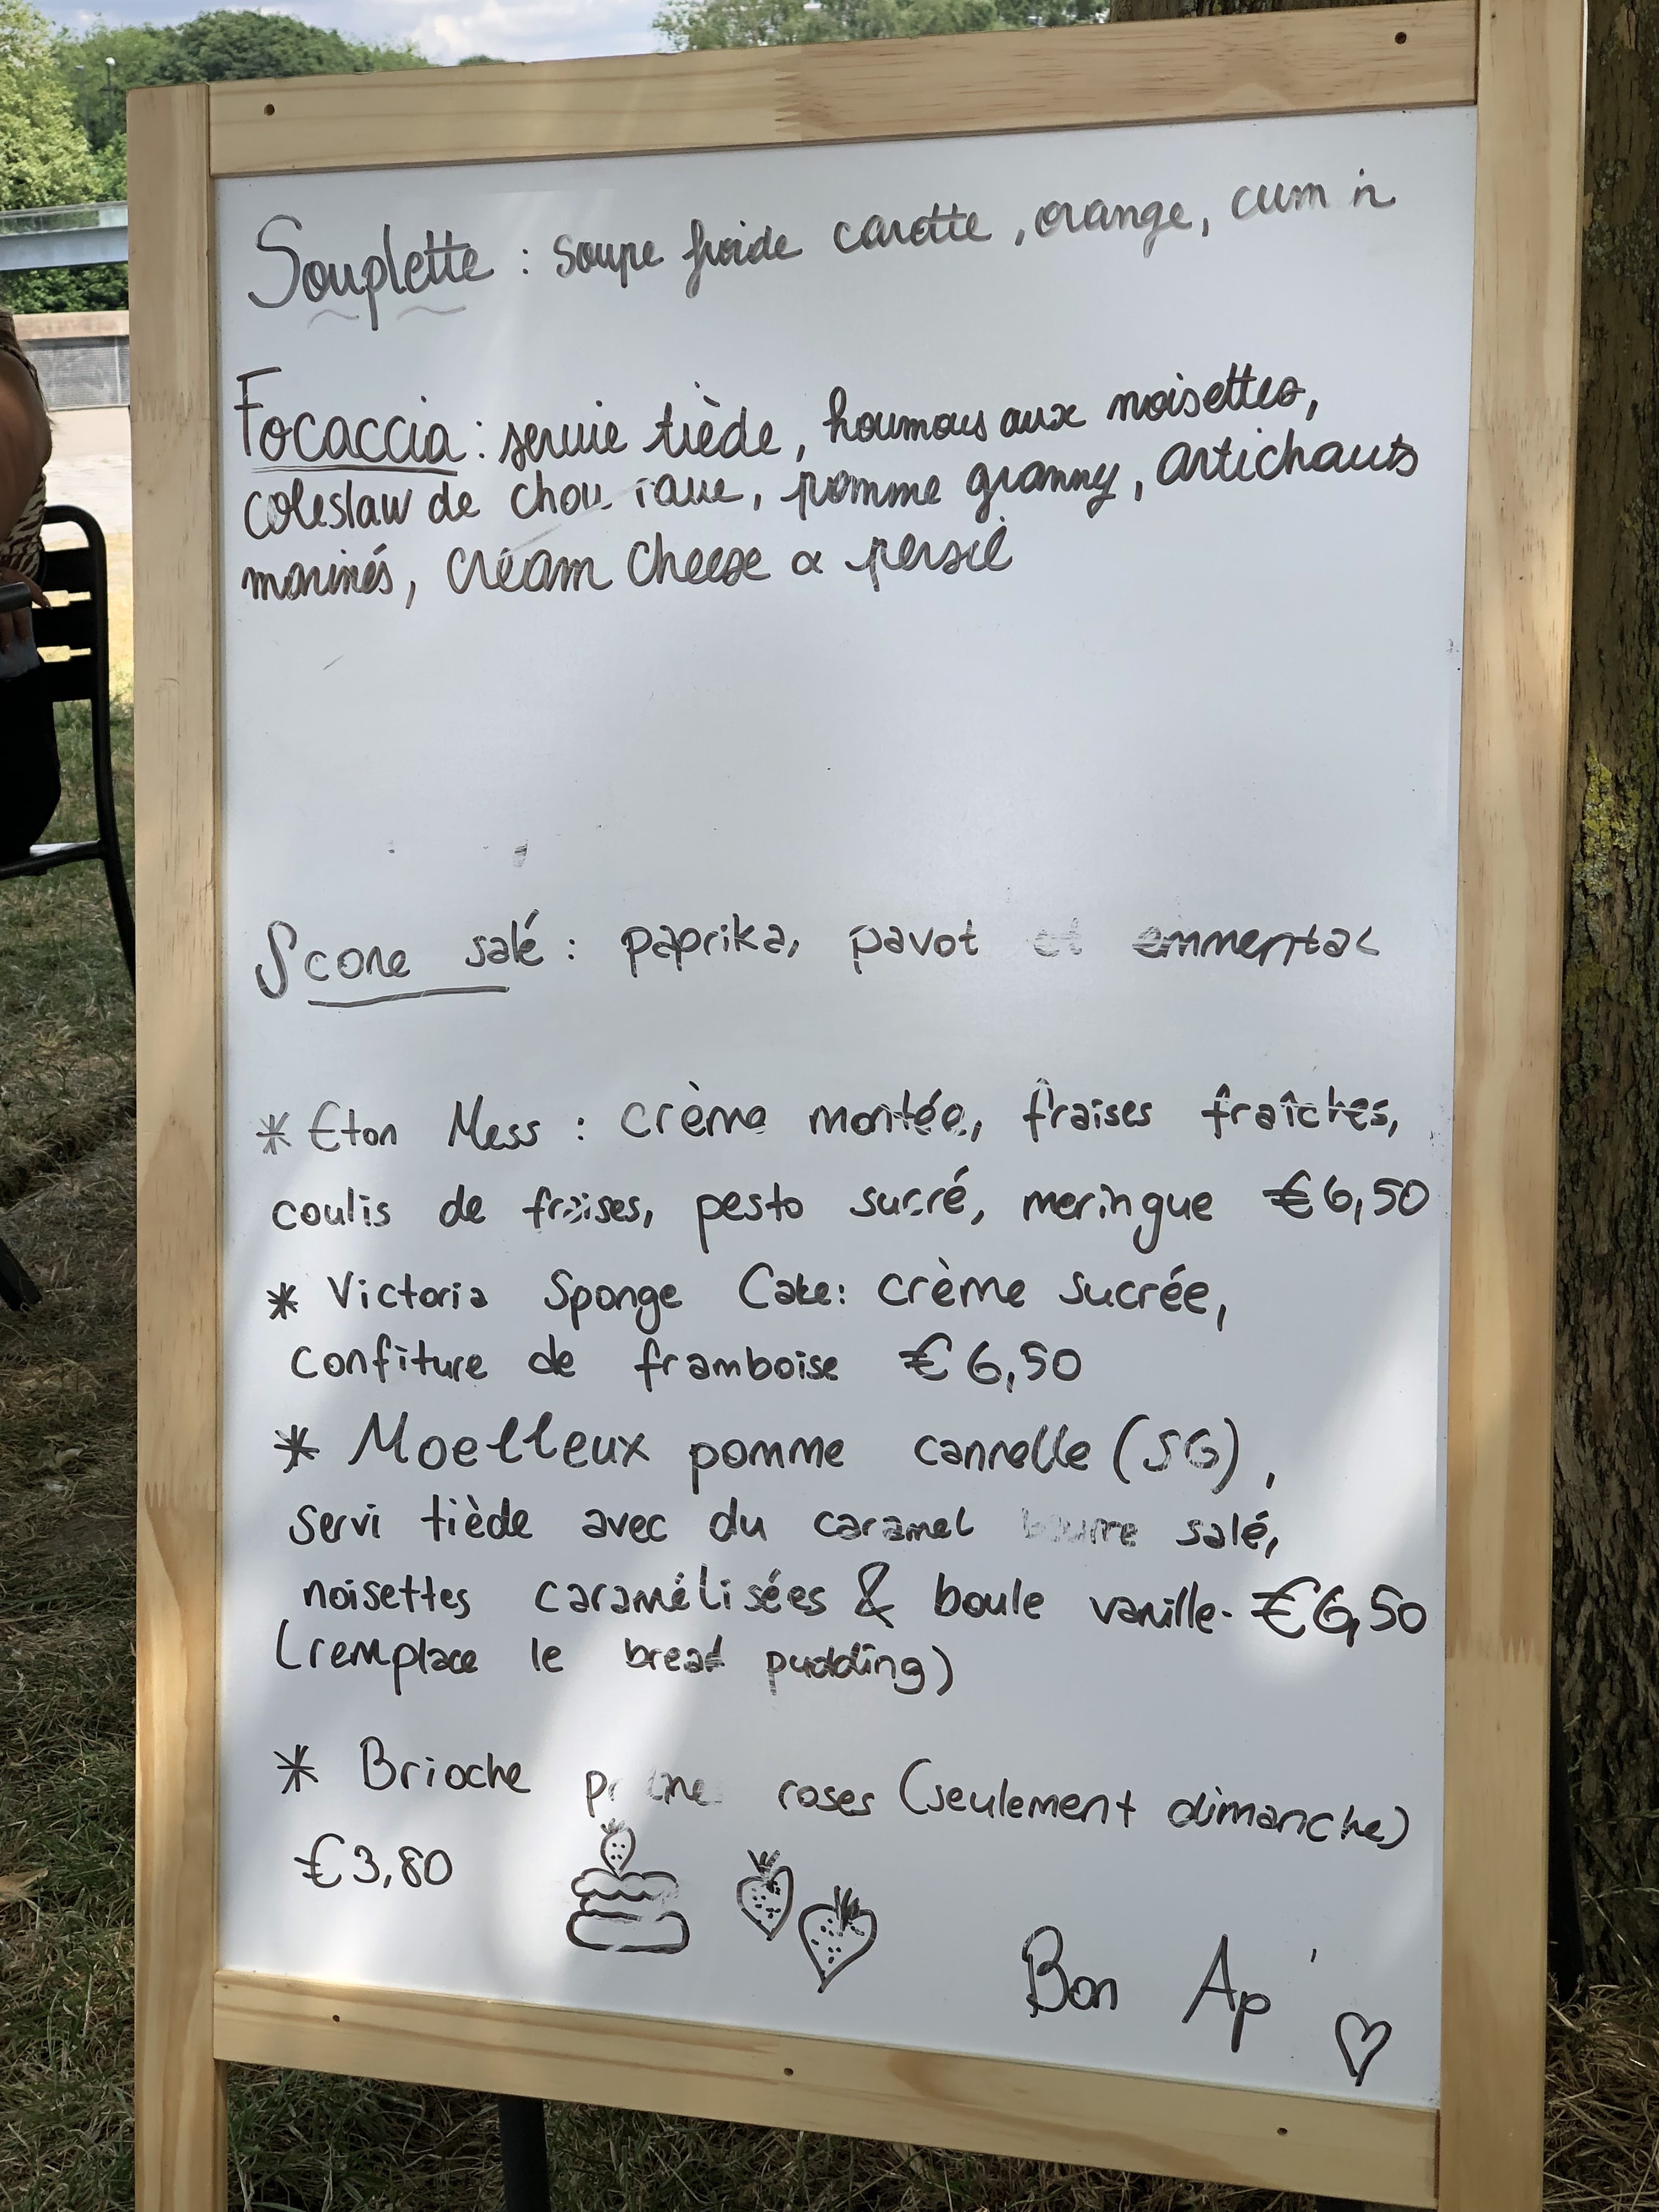 Souplette : soupe froide carotte, orange, cumin
Focaccia : servie tiède, houmous aux noisettes,
coleslaw de chou rave, pomme granny, artichauts
marinés, cream cheese & persil
Scone salé : paprika, pavot et emmental
* Eton Mess : crème montée, fraises fraîches,
coulis de fraises, pesto sucré, meringue €6,50
* Victoria Sponge Cake: crème sucrée,
confiture de framboise €6,50
* Moelleux pomme cannelle (SG),
servi tiède avec du caramel beurre salé,
noisettes caramélisées & boule vanille- €6,50
(remplace le bread pudding)
* Brioche roses (seulement dimanche)
€3,80
Bon Ap'